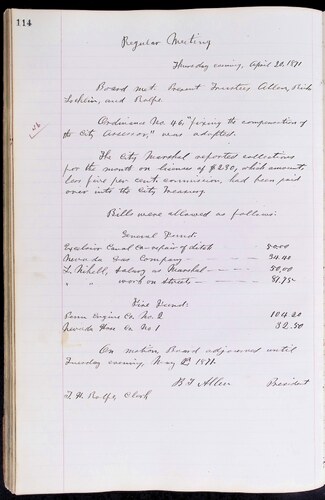 114
Regular Meeting
Thursday evening, April 20, 1871
Board met. Present Trustees Allen,
Locklin, and Rolfe.
46
Ordinance No. 46 "fixing the compensation of
the City Assessor," was adopted.
The City Marshal reported collections
for the month on licenses of $280, which amount,
less five per cent. commission, had been paid
over into the City Treasury.
Bills were allowed as follows:
General Fund:
Excelsior Canal Co - repair of ditch 50.00
Nevada Gas Company 34.40
Nihell, Salary as Marshal 50.00
" " work on streets 81.75
Fire Fund:
Penn Engine Co. No. 2 104.20
Nevada Hose Co. No 1 32.50
On motion, Board adjourned until
evening, May 1871.
Allen President
T. H. Rolfe, Clerk